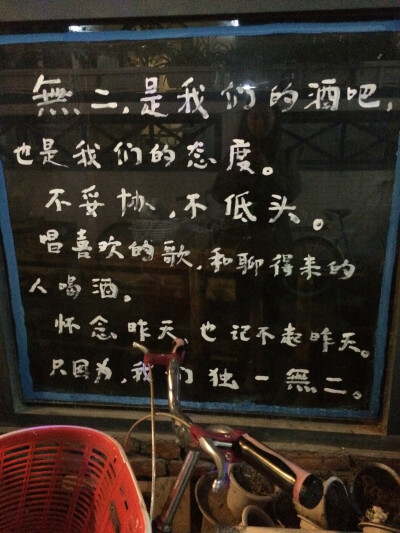 無二,是我们的酒吧,
也是我们的态度。
不妥协,不低头。
唱喜欢的歌,和聊得来的
人喝酒。
怀念昨天,也记不起昨天。
只因为,我们独一無二。